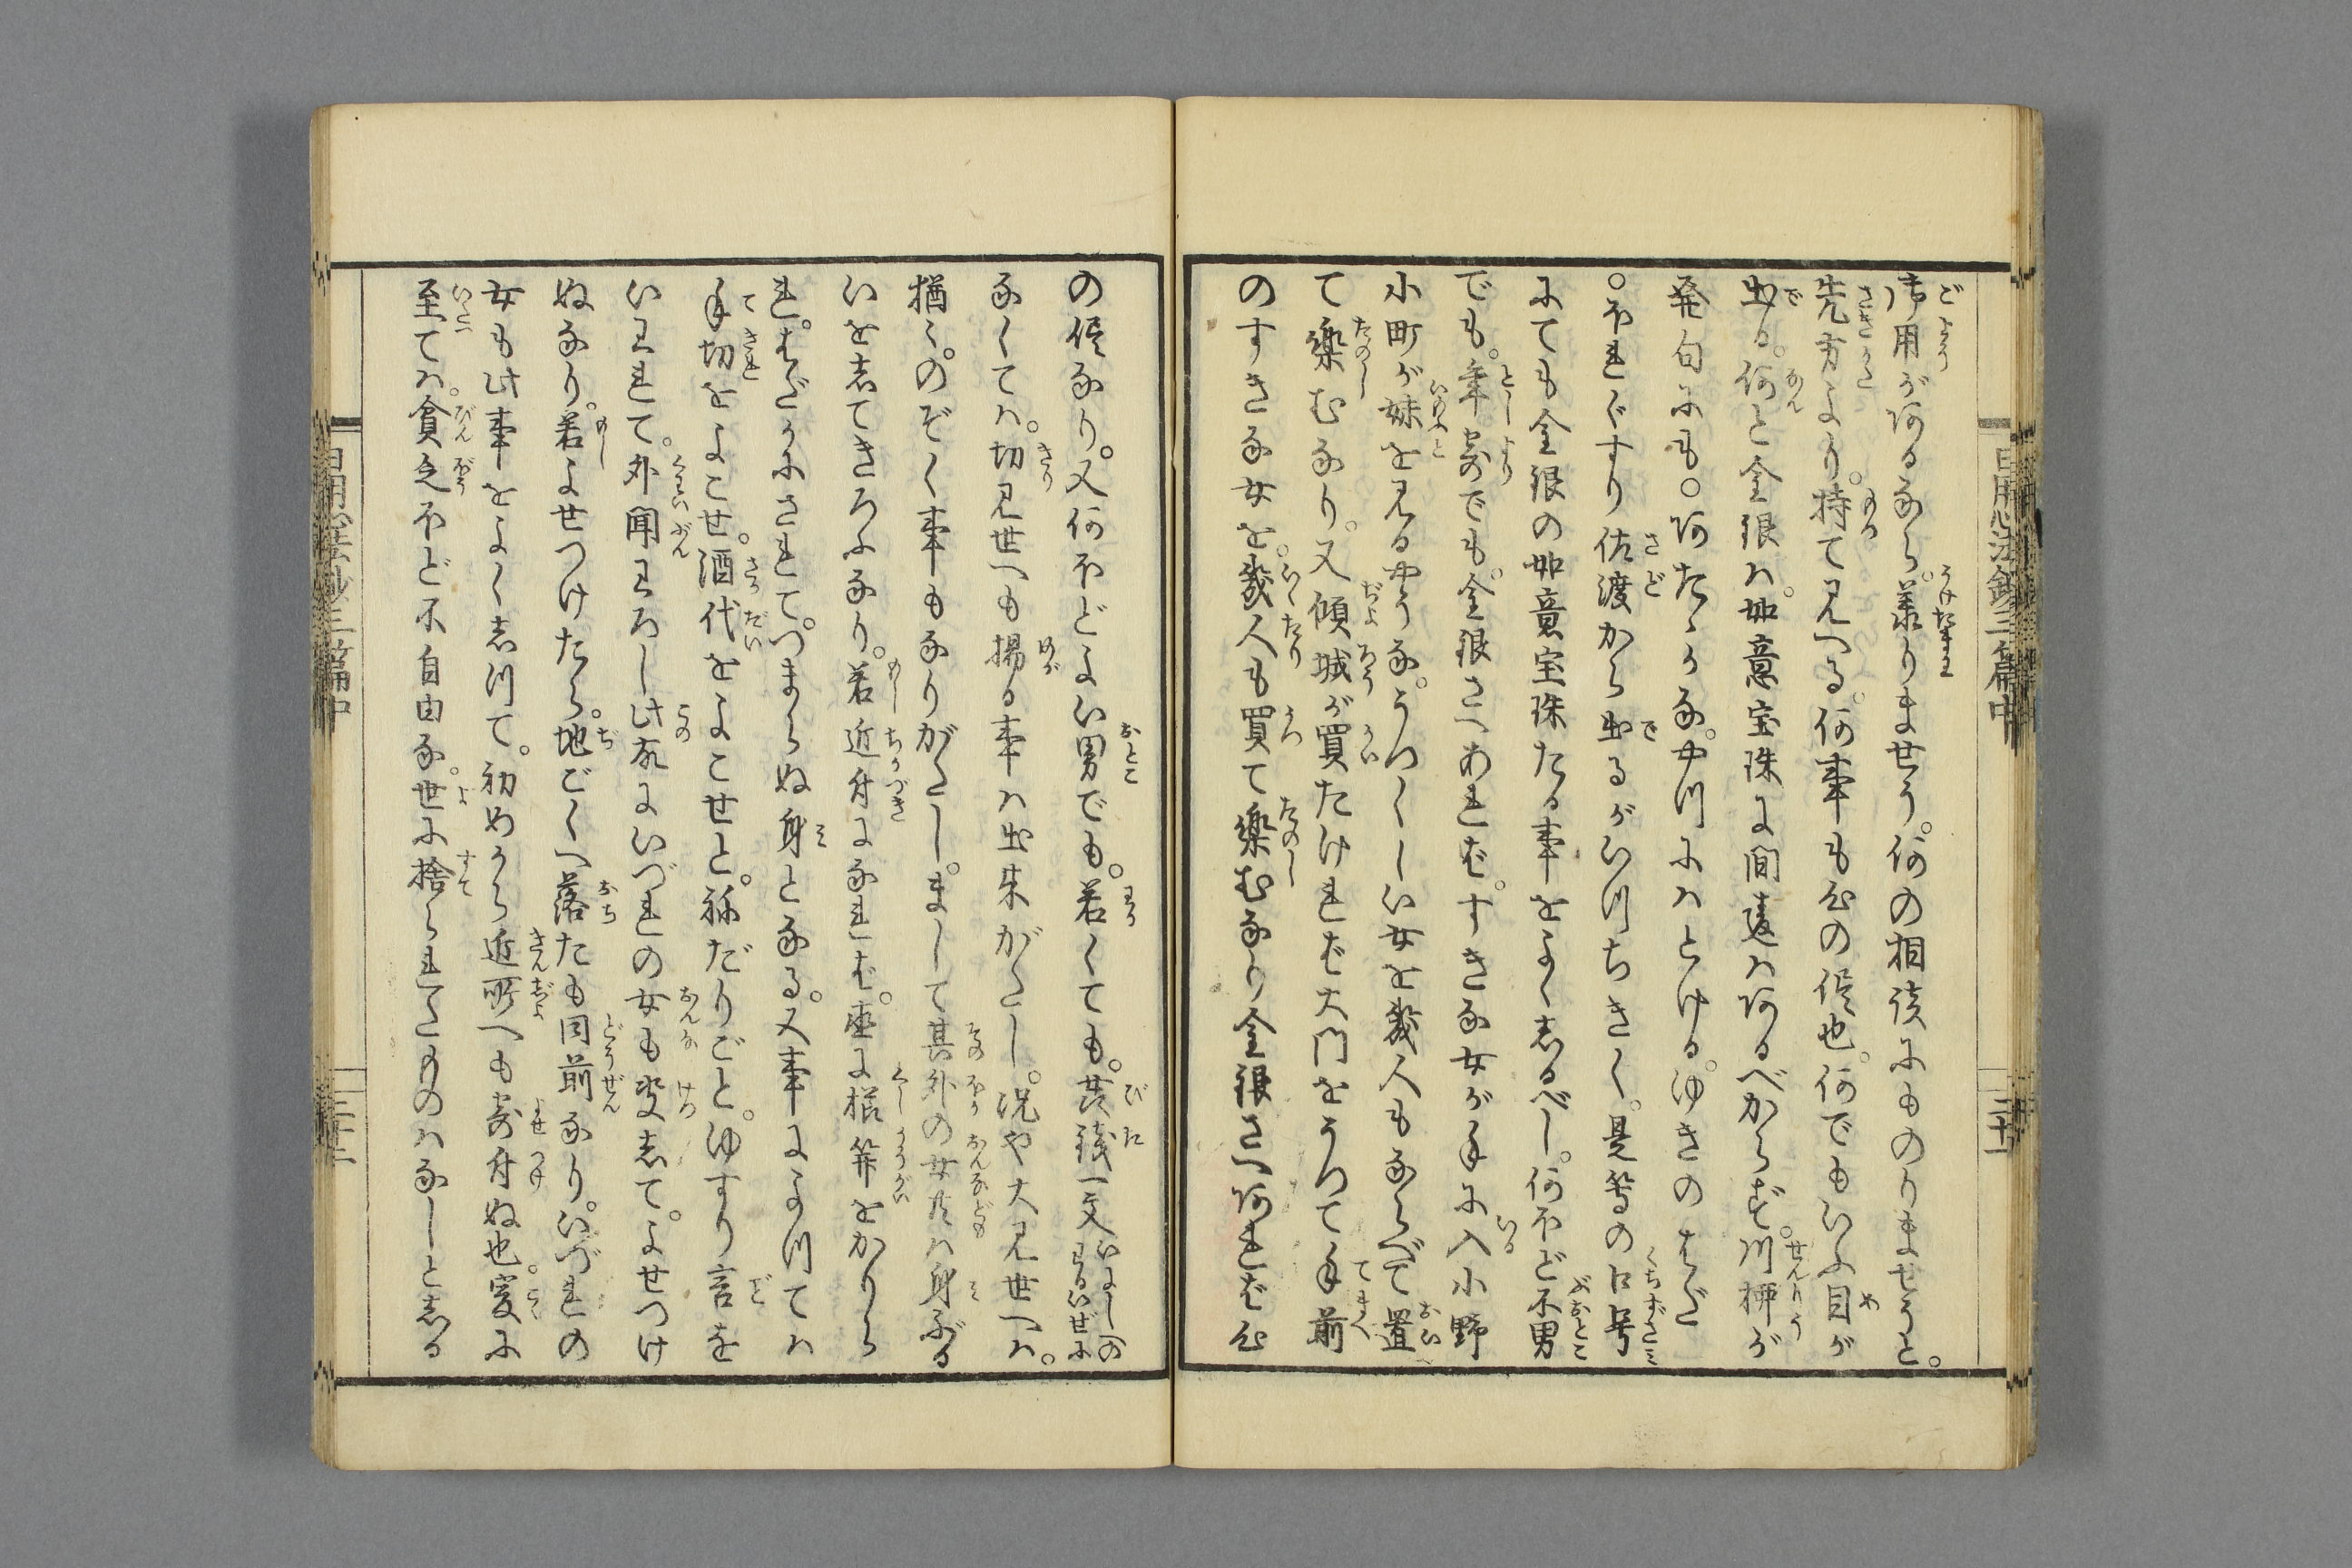 御用が阿る奈ら。承りませう。何の相談にものりませうと。
先方より。持て見へる。何事も心の侭也。何でもいふ目が
出る。何と金銀ハ。如意宝珠に間違ハ阿るべからず。川柳が
発句にも。○阿たゝか尓。安川にハとける。ゆきのはだ
○ほれぐすり佐渡から出るがいつちきく。是等の口号
にても金銀の如意宝珠たる事をよく志るべし。何ほど不男
でも。年寄でも。金銀さへあれば。すきな女が手に入小野
小町が妹を見るやうな。うつくしい女を幾人もならべて置
て楽むなり。又傾城が買たければ大門をうつて手前
のすきな女を。幾人も買て楽むなり金銀さへ阿れば心
の侭なり。又何ほどよい男でも。若くても。芸銭一文
なくてハ。切見世へも揚る事ハ出来がたし。况や大見世へハ。
猶〻。のぞく事もなりがたし。まして其外の女共ハ身ぶる
いを志てきろふなり。若近付になれば。直に櫛笄をかりら
れ。はだかにされて。つまらぬ身となる。又事によつてハ
手切をよこせ。酒代をよこせと。祢だりごと。ゆすり言を
いわれて。外聞わろし此故にいづれの女も決志て。よせつけ
ぬなり。若よせつけたら。地ごくへ落たも同前なり。いづれの
女も此事をよく志つて。初めから近所へも寄付ぬ也。爰に
至てハ。貧乏ほど不自由な。世に捨られたものハなしと志る
日用心法鈔三篇中
二十一
日用心法鈔三篇中